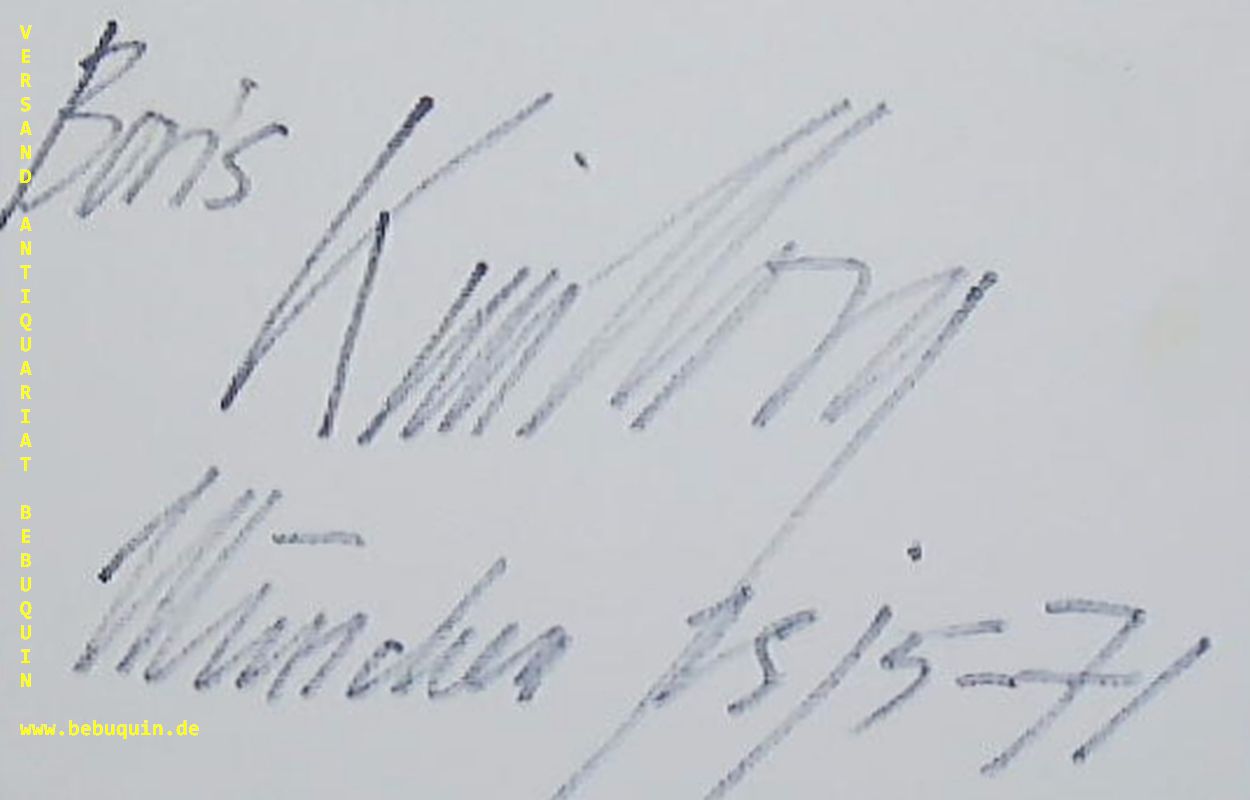 Boris
München 15/5-71
VERSAND ANTIQUARIAT BEBUQUIN
www.bebuquin.de